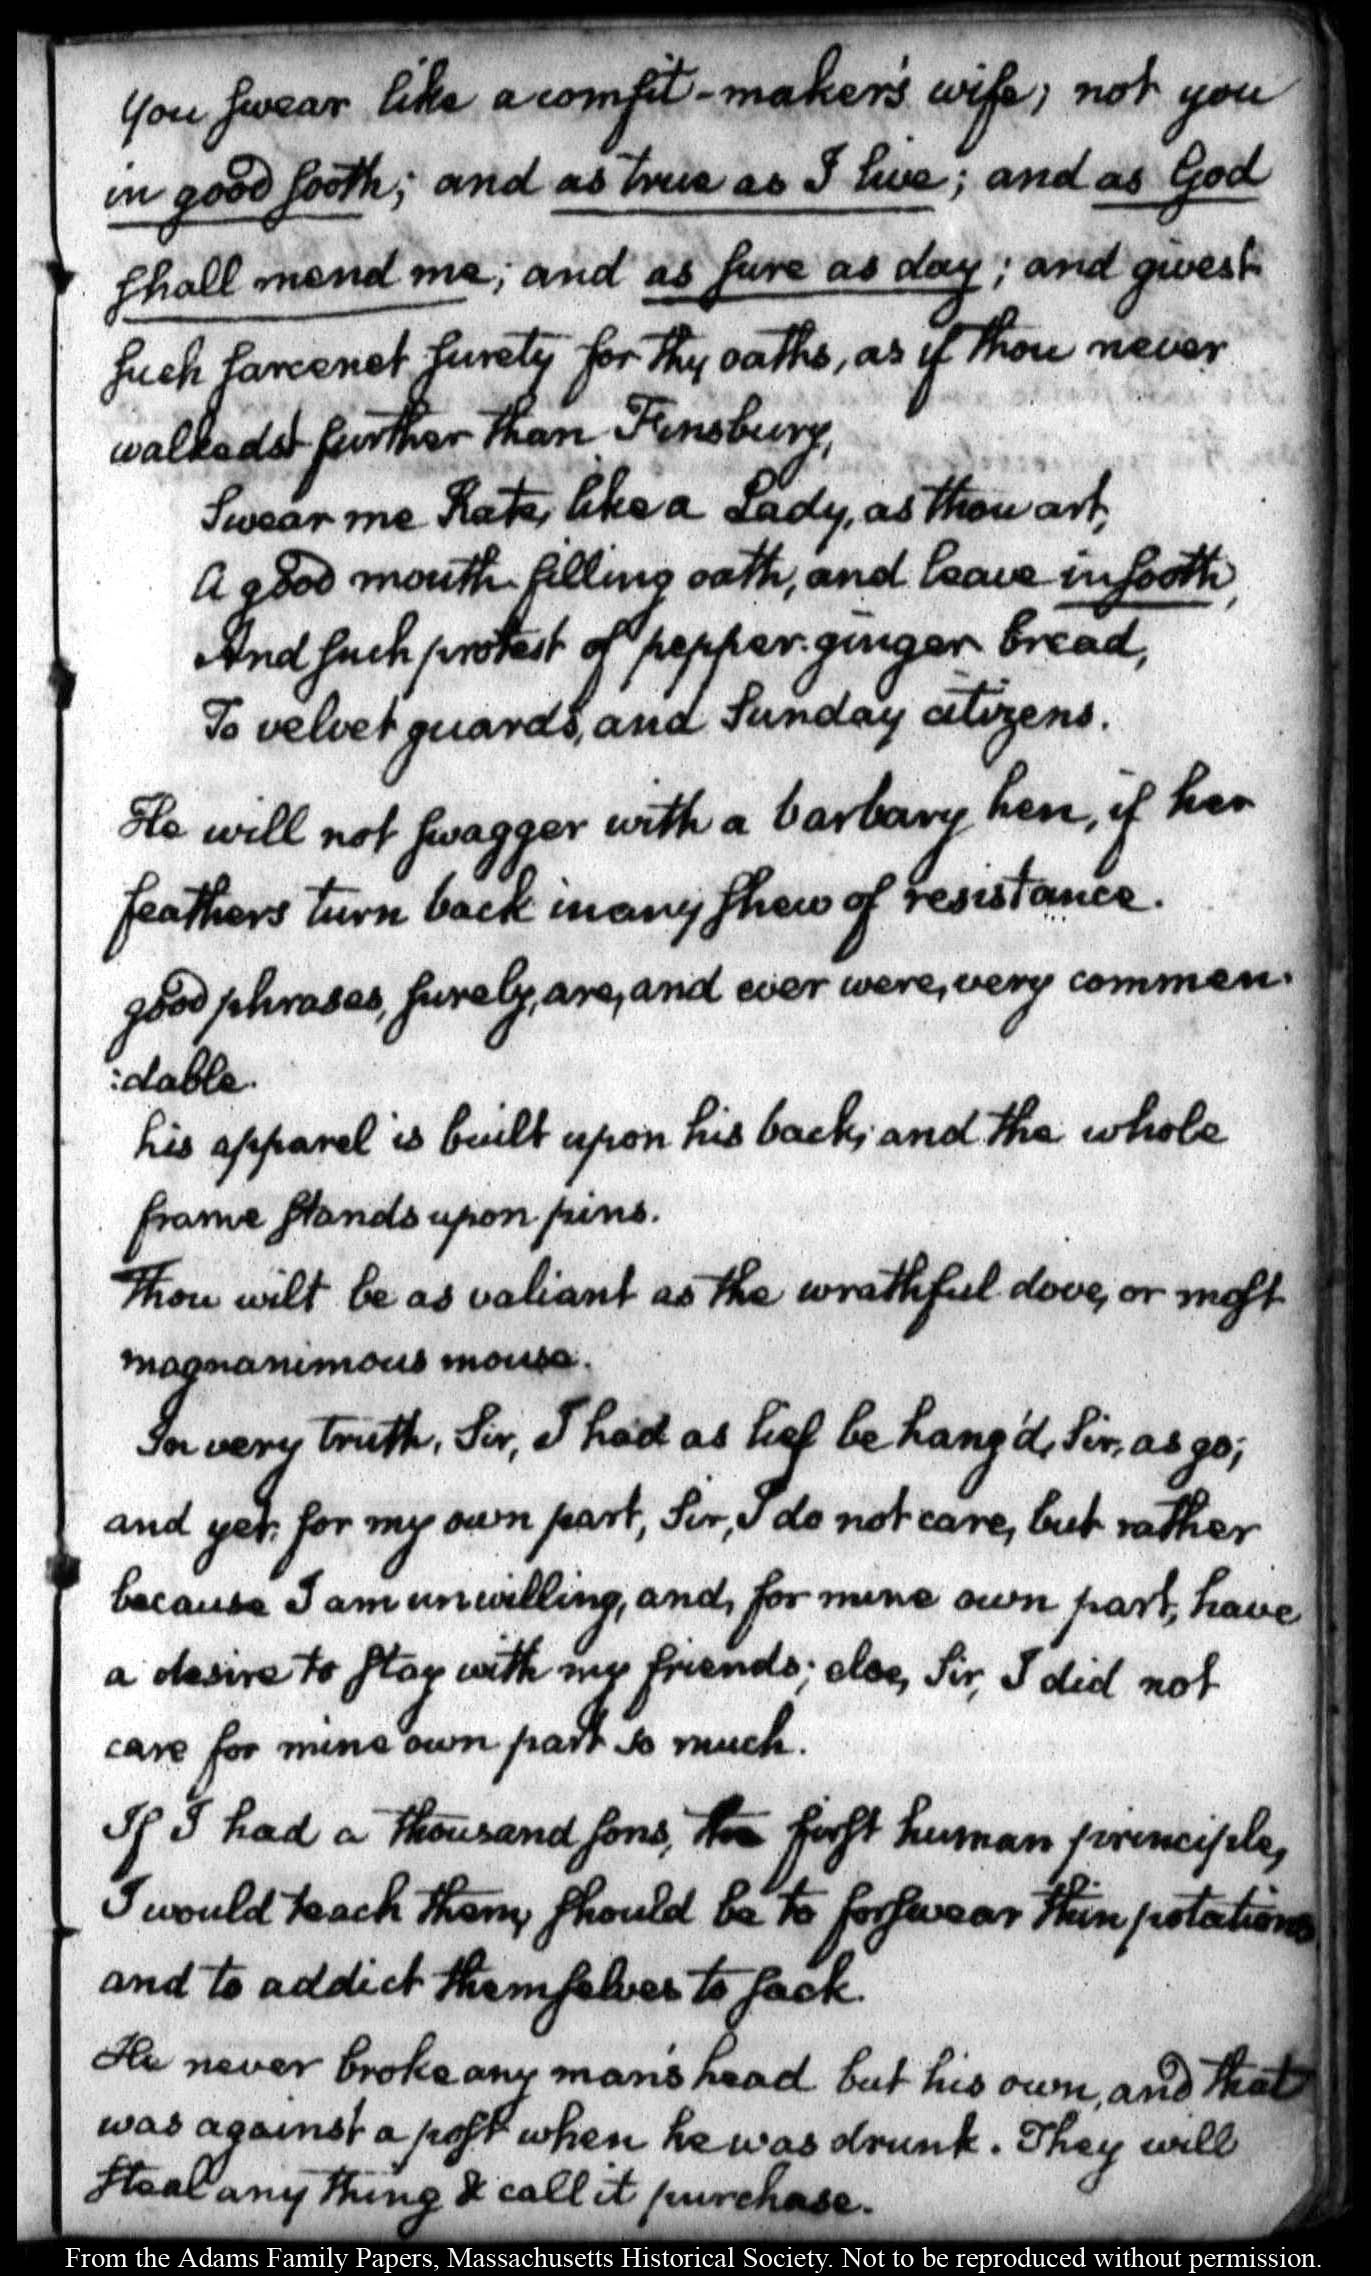 You swear like a comfit-maker's wife; not you
in good sooth; and as true as I live; and as God
shall mend me; and as sure as day; and givest
such sarcenet surety for thy oaths, as if thou never
walkedst further than Finsbury,
Swear me Kate, like a Lady, as thou art,
A good mouth filling oath, and leave in sooth,
And such protest of pepper-ginger bread,
To velvet guards, and Sunday citizens.
He will not swagger with a barbary hen, if her
feathers turn back in any shew of resistance.
good phrases, surely, are, and ever were, very commen-
:dable.
his apparel is built upon his back; and the whole
frame stands upon pins.
Thou wilt be as valiant as the wrathful dove, or most
magnanimous mouse.
In very truth, Sir, I had as lief be hang'd, Sir, as go;
and yet, for my own part, Sir, I do not care, but rather
because I am unwilling, and, for mine own part, have
a desire to stay with my friends; else, Sir, I did not
care for mine own part so much.
If I had a thousand sons, the first human principle,
I would teach them, should be to forswear thin potations
and to addict themselves to sack.
He never broke any man's head but his own, and that
was against a post when he was drunk. They will
steal any thing & call it purchase.
From the Adams Family Papers, Massachusetts Historical Society. Not to be reproduced without permission.